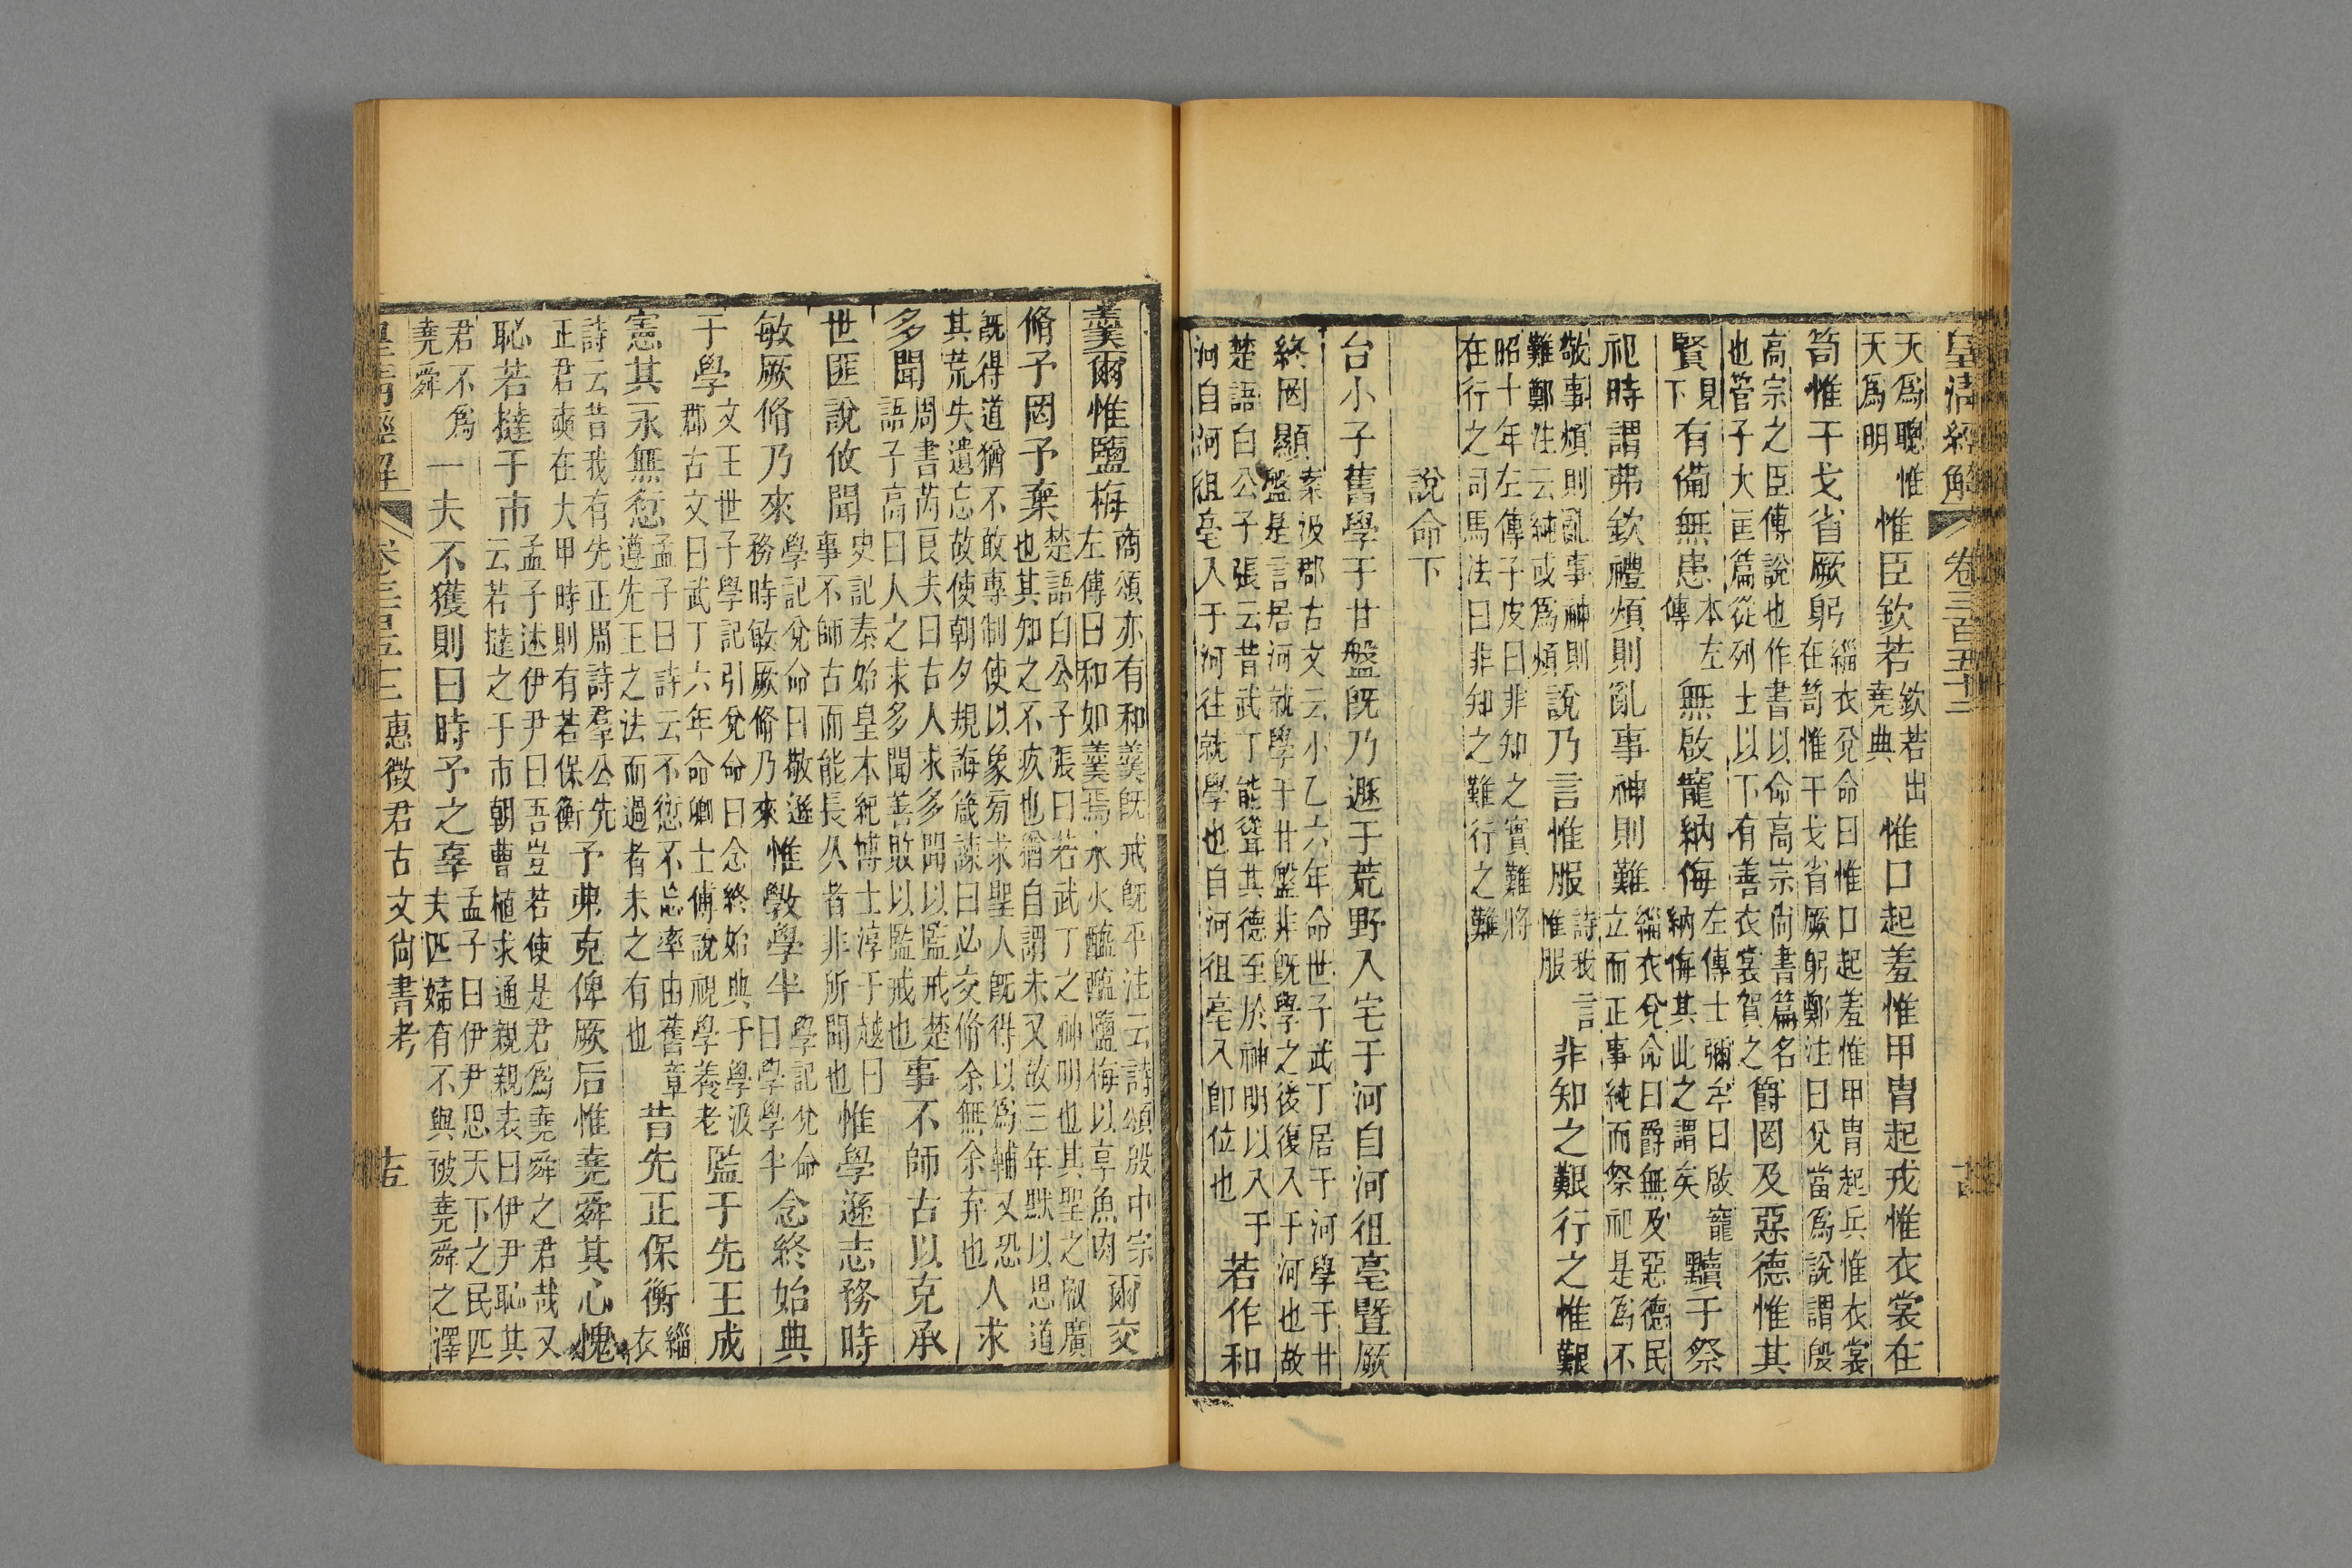 皇清經解 卷三百五十二 古
天爲聰惟天爲明惟臣欽若欽若出堯典惟口起羞惟甲冑起戎惟衣裳在
笥惟干戈省厥躬緇衣兌命曰惟口起羞惟甲冑起兵惟衣裳在笥惟干戈省厥躬鄭注曰兌當爲說謂殷
高宗之臣傅說也作書以命高宗尙書篇名也管子大匡篇從列士以下有善衣裳賀之爵罔及惡德惟其
賢見下有備無患本左傳無啟寵納侮左傳士彌牟曰啟寵納侮其此之謂矣黷于祭
祀時謂弗欽禮煩則亂事神則難緇衣兌命曰爵無及惡德民立而正事純而祭祀是爲不
敬事煩則亂事神則難鄭注云純或爲煩說乃言惟服詩我言惟服非知之艱行之惟艱
昭十年左傳子皮曰非知之實難將在行之司馬法曰非知之難行之難
說命下
台小子舊學于甘盤旣乃遯于荒野入宅于河自河徂亳暨厥
終罔顯案汲郡古文云小乙六年命世子武丁居于河學于甘盤是言居河就學于甘盤非旣學之後復入于河也故
楚語白公子張云昔武丁能聳其德至於神明以入于河自河徂亳入于河往就學也自河徂亳入卽位也若作和
羹爾惟鹽梅商頌亦有和羹旣戒旣平注云詩頌殷中宗左傳曰和如羹焉水火醯醢鹽梅以享魚肉爾交
脩予罔予棄楚語白公子張曰若武丁之神明也其聖之叡廣也其知之不疚也猶自謂未乂故三年默以思道
旣得道猶不敢專制使以象旁求聖人旣得以爲輔又恐其荒失遺忘故使朝夕規誨箴諫曰必交脩余無余弃也人求
多聞周書芮良夫曰古人求多聞以監戒楚語子高曰人之求多聞善敗以監戒也事不師古以克承
世匪說攸聞史記秦始皇本紀博士淳于越曰事不師古而能長久者非所聞也惟學遜志務時
敏厥脩乃來學記兌命曰敬遜務時敏厥脩乃來惟斆學半學記兌命曰學學半念終始典
于學文王世子學記引兌命曰念終始典于學汲郡古文曰武丁六年命卿士傅說視學養老監于先王成
憲其永無愆孟子曰詩云不愆不忘率由舊章遵先王之法而過者未之有也昔先正保衡緇衣
詩云昔我有先正周詩羣公先正君奭在大甲時則有若保衡予弗克俾厥后惟堯舜其心愧
恥若撻于市孟子述伊尹曰吾豈若使是君爲堯舜之君哉又云若撻之于市朝曹植求通親親表曰伊尹恥其
君不爲堯舜一夫不獲則曰時予之辜孟子曰伊尹思天下之民匹夫匹婦有不與被堯舜之澤
皇清經解 卷三百五十二 惠徵君古文尙書考 十五